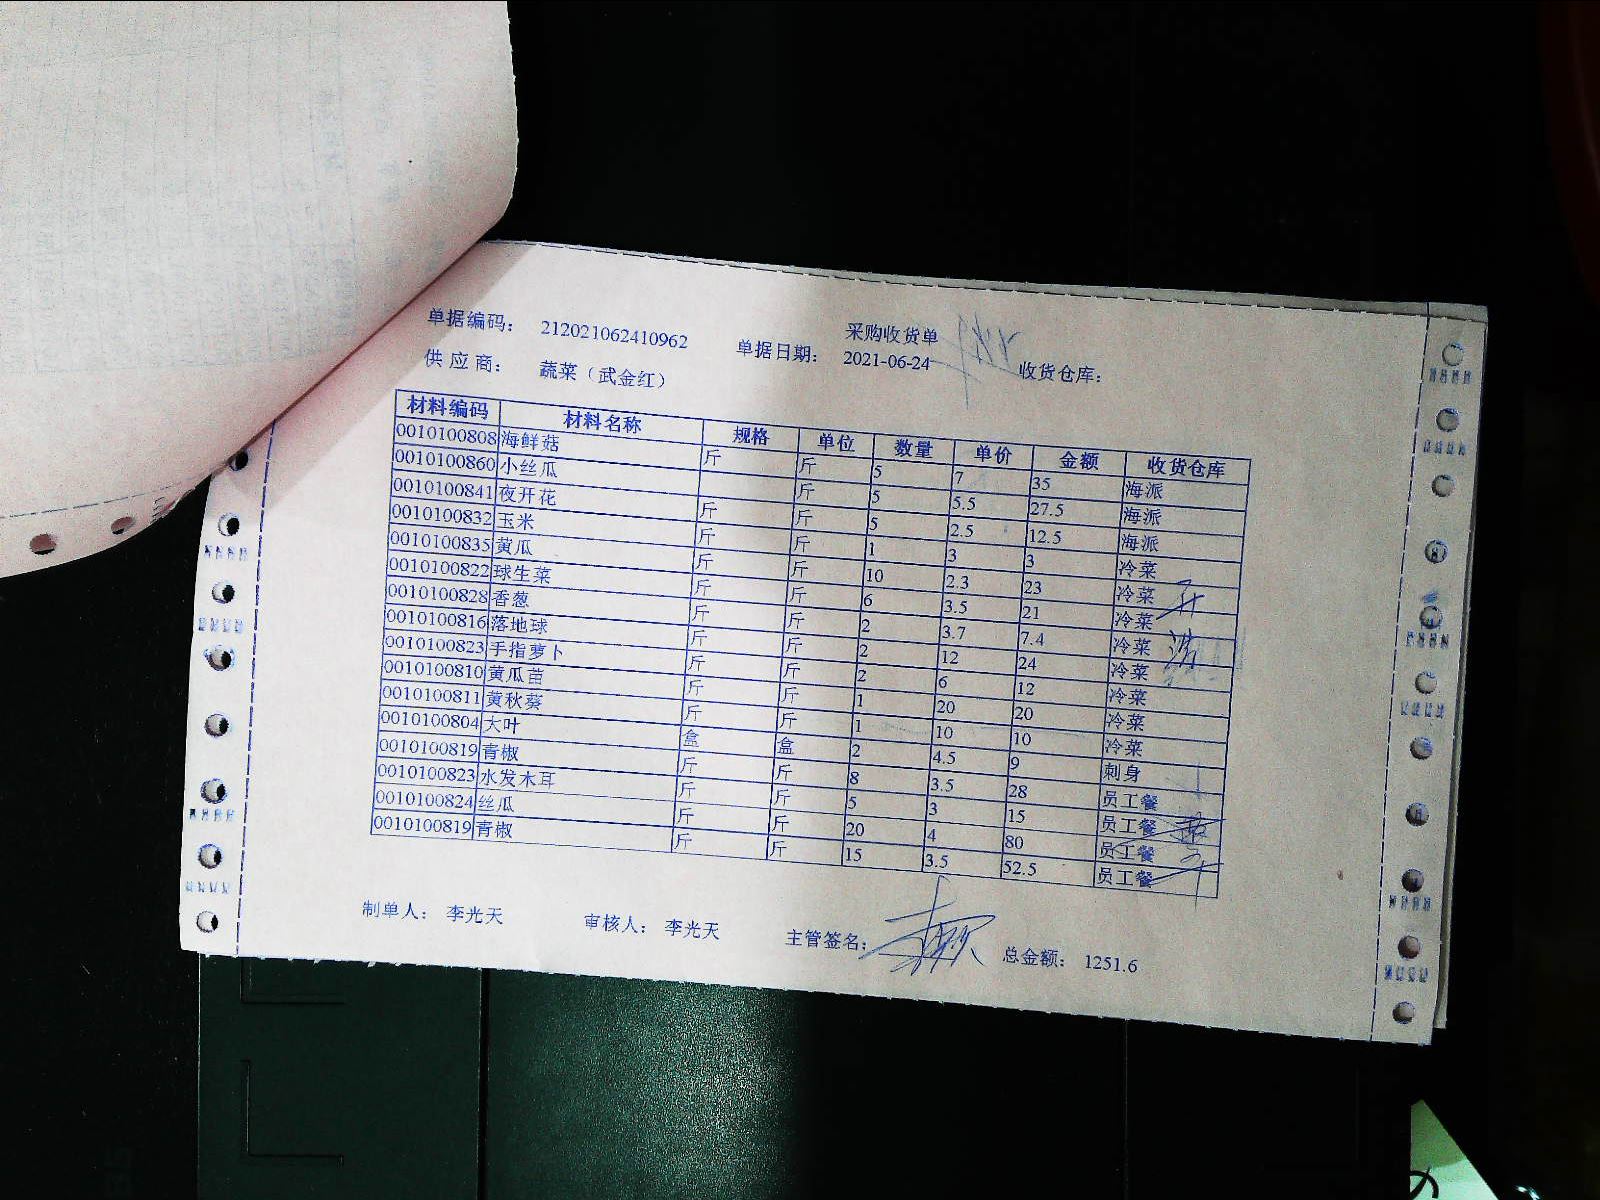 采购收货单
单据编码： 212021062410962 单据日期： 2021-06-24 收货仓库：
供应商： 蔬菜（武金红）
材料编码 材料名称 规格 单位 数量 单价 金额 收货仓库
0010100808 海鲜菇 斤 斤 5 7 35 海派
0010100860 小丝瓜 斤 5 5.5 27.5 海派
0010100841 夜开花 斤 斤 5 2.5 12.5 海派
0010100832 玉米 斤 斤 1 3 3 冷菜
0010100835 黄瓜 斤 斤 10 2.3 23 冷菜
0010100822 球生菜 斤 斤 6 3.5 21 冷菜
0010100828 香葱 斤 斤 2 3.7 7.4 冷菜
0010100816 落地球 斤 斤 2 12 24 冷菜
0010100823 手指萝卜 斤 斤 2 6 12 冷菜
0010100810 黄瓜苗 斤 斤 1 20 20 冷菜
0010100811 黄秋葵 斤 斤 1 10 10 冷菜
0010100804 大叶 盒 盒 2 4.5 9 刺身
0010100819 青椒 斤 斤 8 3.5 28 员工餐
0010100823 水发木耳 斤 斤 5 3 15 员工餐
0010100824 丝瓜 斤 斤 20 4 80 员工餐
0010100819 青椒 斤 斤 15 3.5 52.5 员工餐
制单人： 李光天 审核人： 李光天 主管签名： 总金额： 1251.6